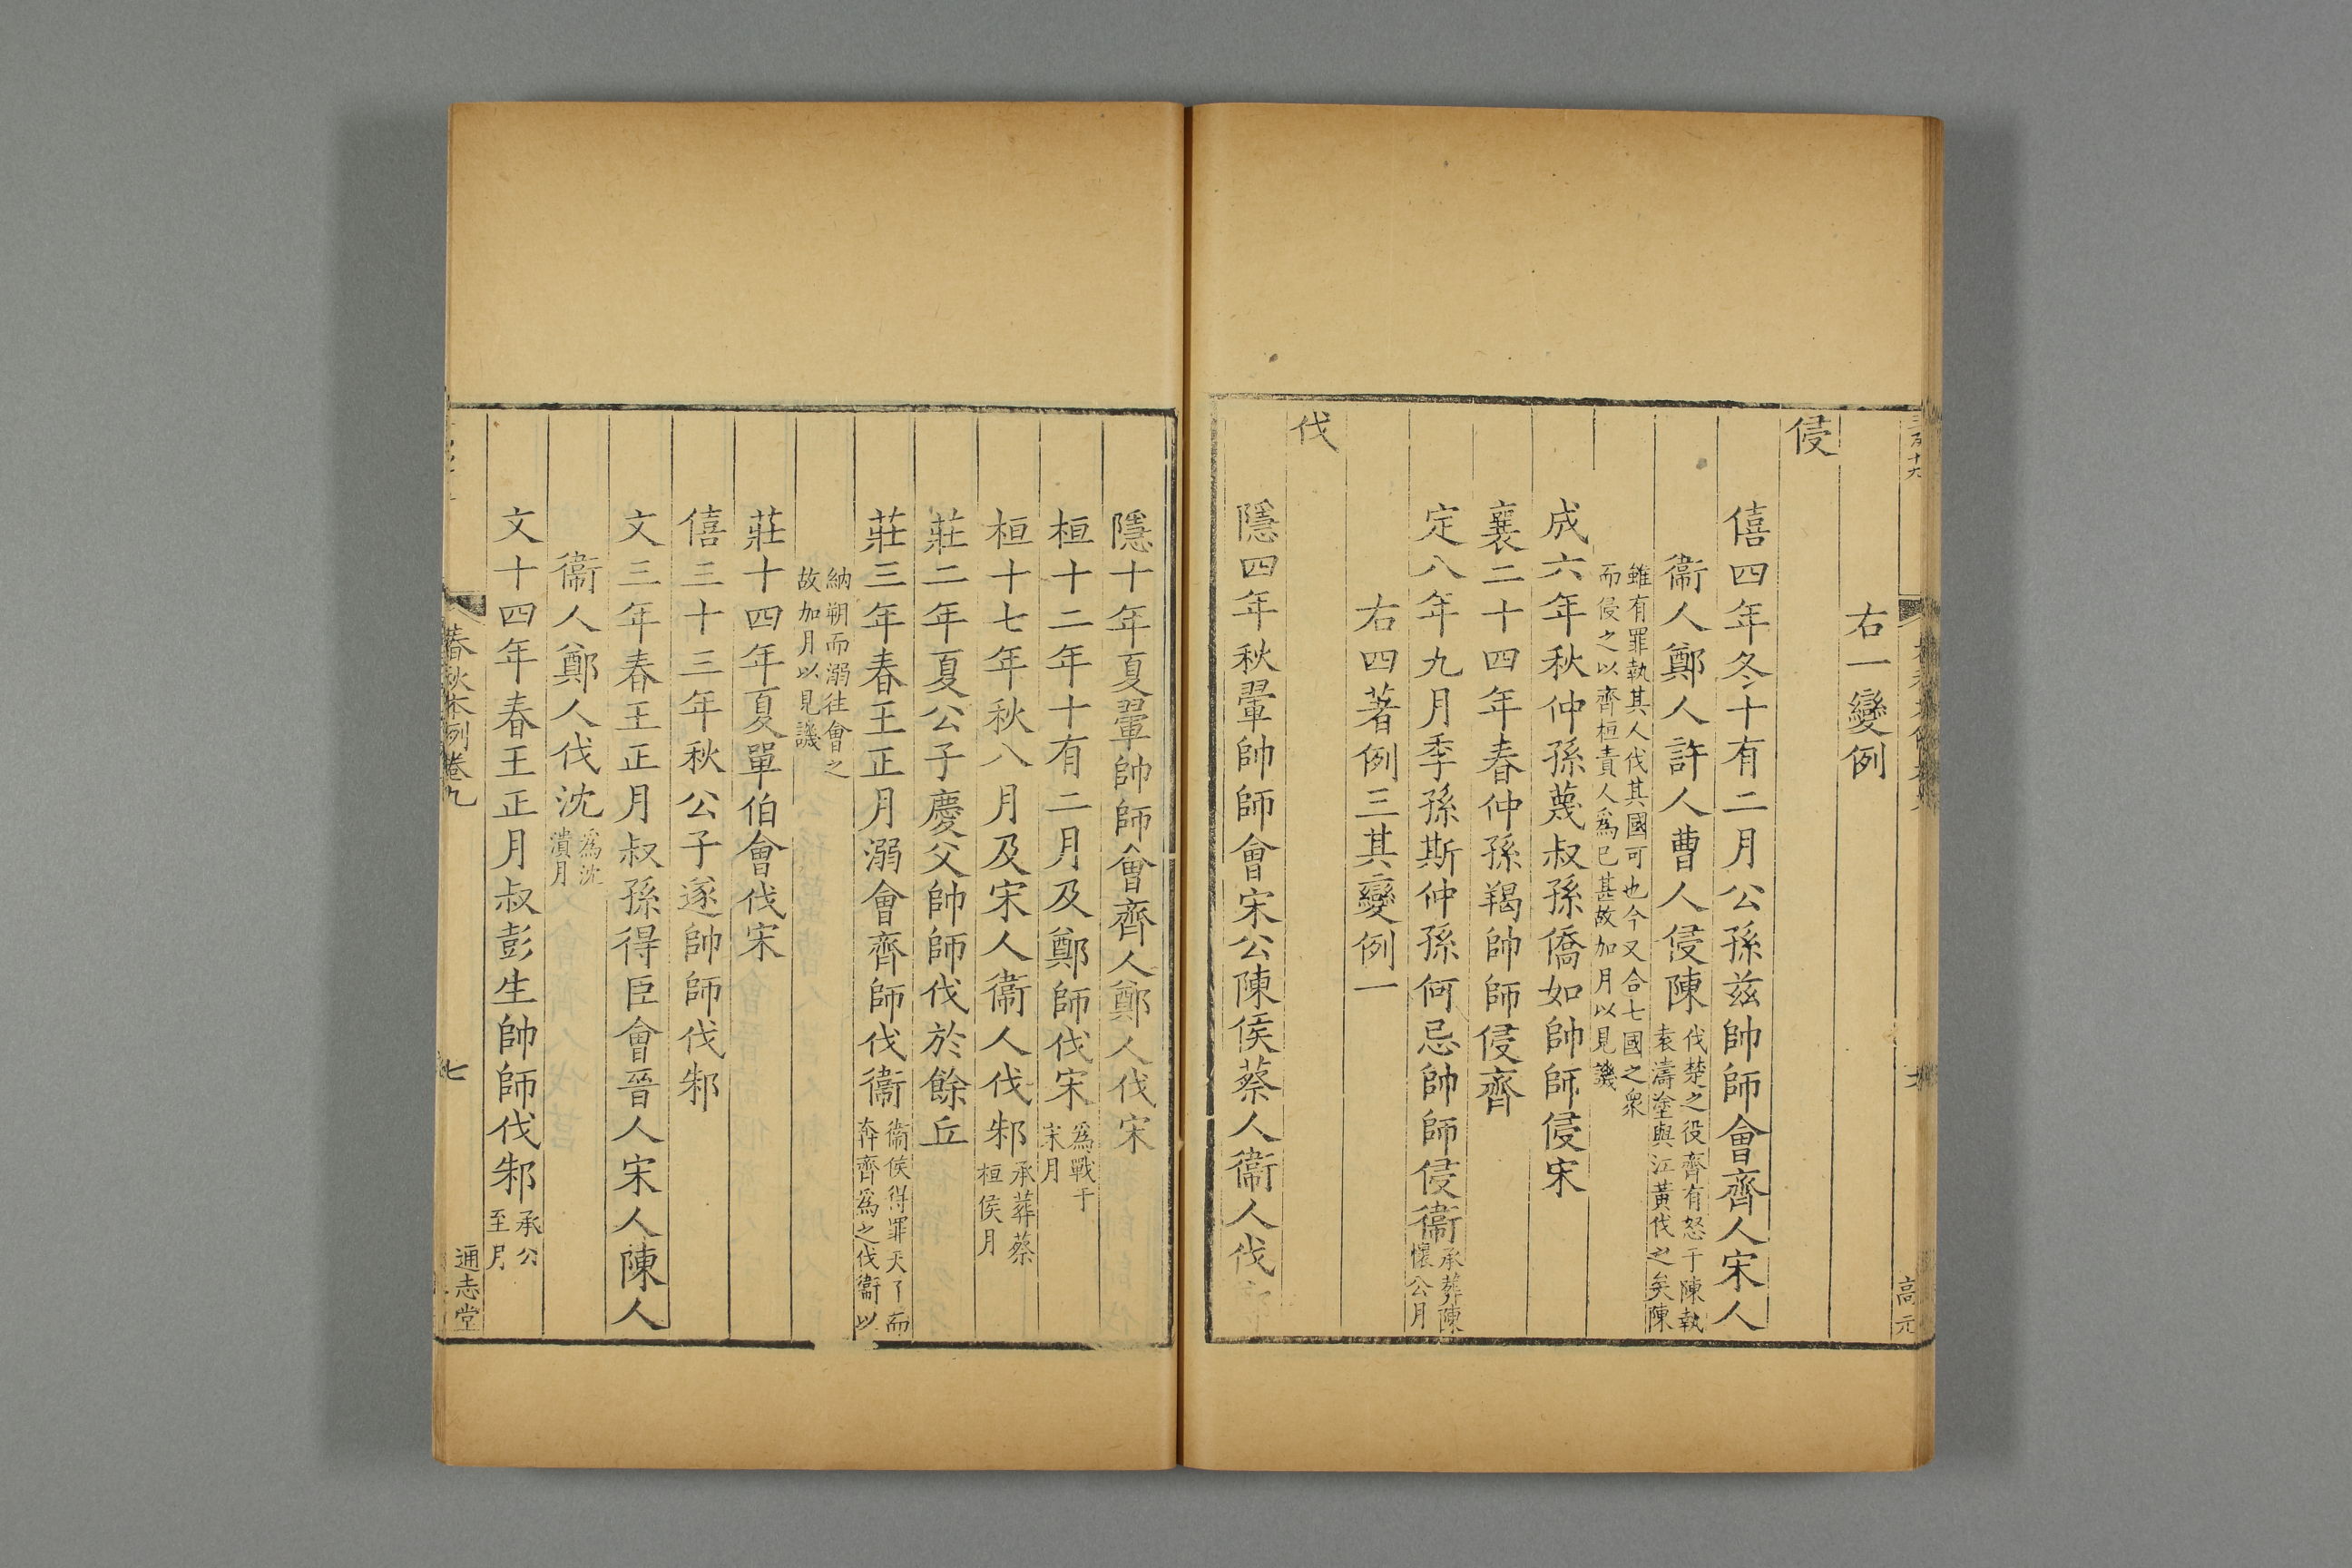 右一變例
侵
僖四年冬十有二月公孫兹帥師會齊人宋人
衞人鄭人許人曹人侵陳伐楚之役齊有怒于陳執
袁濤塗與江黃伐之矣陳
雖有罪執其人伐其國可也今又合七國之衆
而侵之以齊桓責人爲已甚故加月以見譏
成六年秋仲孫蔑叔孫僑如帥師侵宋
襄二十四年春仲孫羯帥師侵齊
定八年九月季孫斯仲孫何忌帥師侵衞承葬陳
懷公月
右四著例三其變例一
伐
隱四年秋翬帥師會宋公陳侯蔡人衞人伐
高元
隱十年夏翬帥師會齊人鄭人伐宋
桓十二年十有二月及鄭師伐宋爲戰于
宋月
桓十七年秋八月及宋人衞人伐邾承葬蔡
桓侯月
莊二年夏公子慶父帥師伐於餘丘
莊三年春王正月溺會齊師伐衞衞侯得罪天了而
奔齊爲之伐衞以
納朔而溺往會之
故加月以見譏
莊十四年夏單伯會伐宋
僖三十三年秋公子遂帥師伐邾
文三年春王正月叔孫得臣會晉人宋人陳人
衞人鄭人伐沈爲沈
潰月
文十四年春王正月叔彭生帥師伐邾承公
至月
春秋本例卷九
七
通志堂